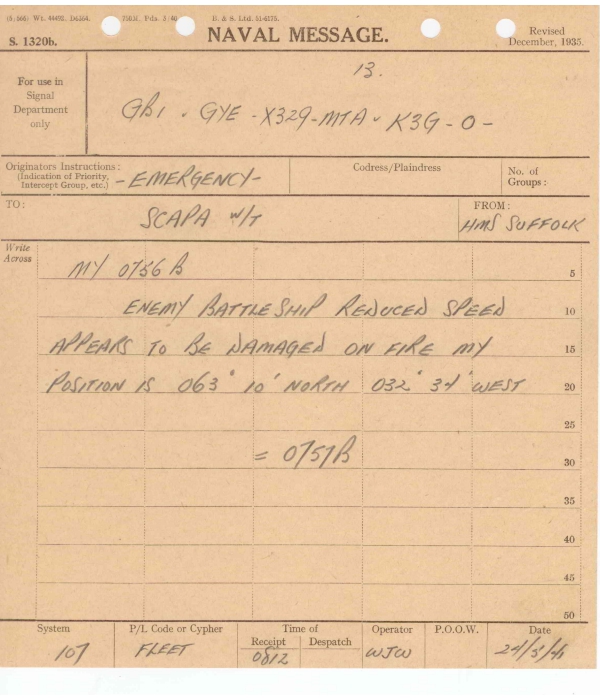 (6/566) Wt. 44492. D6364. 7503l. Pds. 3/40 B. & S. Ltd. 51-6575.
S. 1320b.
NAVAL MESSAGE.
Revised
December, 1935.
For use in
Signal
Department
only
13.
GBI - GYE -X329-MTA- K3G - O -
Originators Instructions :
(Indication of Priority,
Intercept Group, etc.)
-EMERGENCY-
Codress/Plaindress
No. of
Groups :
TO :
SCAPA W/T
FROM :
HMS SUFFOLK
Write
Across
MY 0756 B
5
ENEMY BATTLESHIP REDUCED SPEED
10
APPEARS TO BE DAMAGED ON FIRE MY
15
POSITION IS 063° 10' NORTH 032° 34' WEST
20
25
= 0757B
30
35
40
45
50
System
P/L Code or Cypher
Time of
Receipt Despatch
Operator
P.O.O.W.
Date
107
FLEET
0812
WJW
24/5/41